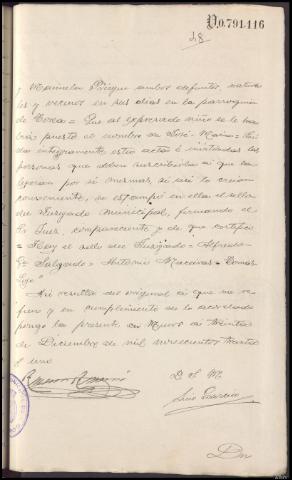 D.0.791.116
28
y Manuela Pirique ambos difuntos, natura
les y vecinos en sus dias en la parroquia
de = Que al expresado niño se le ha
bia puesto el nombre de José Maria = Lei
da integramente esta acta é invitadas las
personas que deben suscribirla á que la
leyeran por si mismas, si asi lo creian
conveniente, se estampó en ella el sello
del Juzgado Municipal, firmando el
Sr Juez, compareciente y de que certifico
= Hay el sello del Juzgado = Alfredo
Salgado = Antonio Maceiras = Tomas
Asi resulta del original á que me re
fiero y en cumplimiento de lo acordado
pongo la presente en Muros á treinta
de Diciembre de mil novecientos treinta
é uno